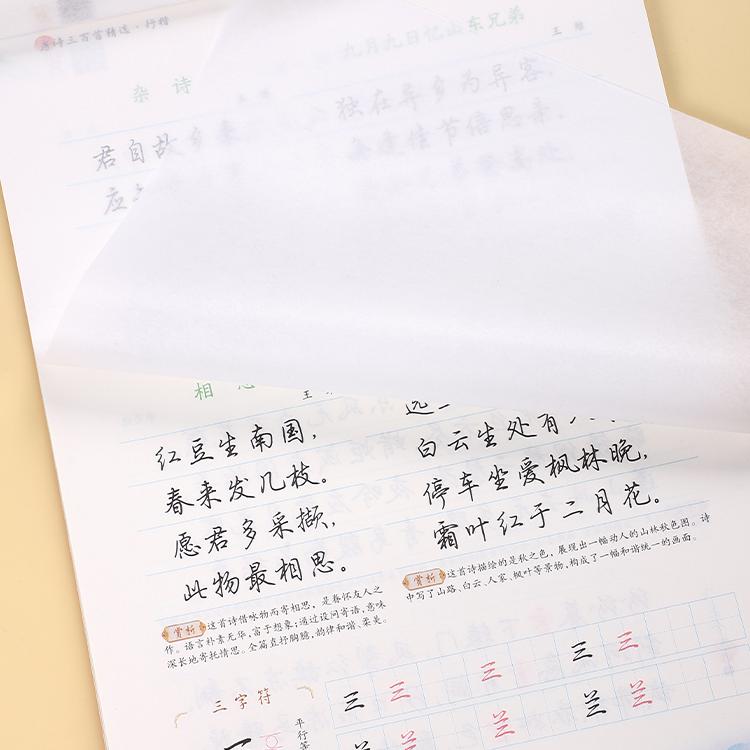 唐诗三百首精选·行楷
杂诗
君自故乡来
应
九月九日忆山东兄弟
王维
独在异乡为异客，
每逢佳节倍思亲。
相思
王
红豆生南国，
春来发几枝。
愿君多采撷，
此物最相思。
赏析 这首诗借咏物而寄相思，是眷怀友人之
作。语言朴素无华，富于想象；通过设问寄语，意味
深长地寄托情思。全篇直抒胸臆，韵律和谐、柔美。
远
白云生处有人
停车坐爱枫林晚，
霜叶红于二月花。
赏析 这首诗描绘的是秋之色，展现出一幅动人的山林秋色图。诗
中写了山路、白云、人家、枫叶等景物，构成了一幅和谐统一的画面。
三字符
平行等
三 三 三 三 三
兰 兰 兰 兰 兰